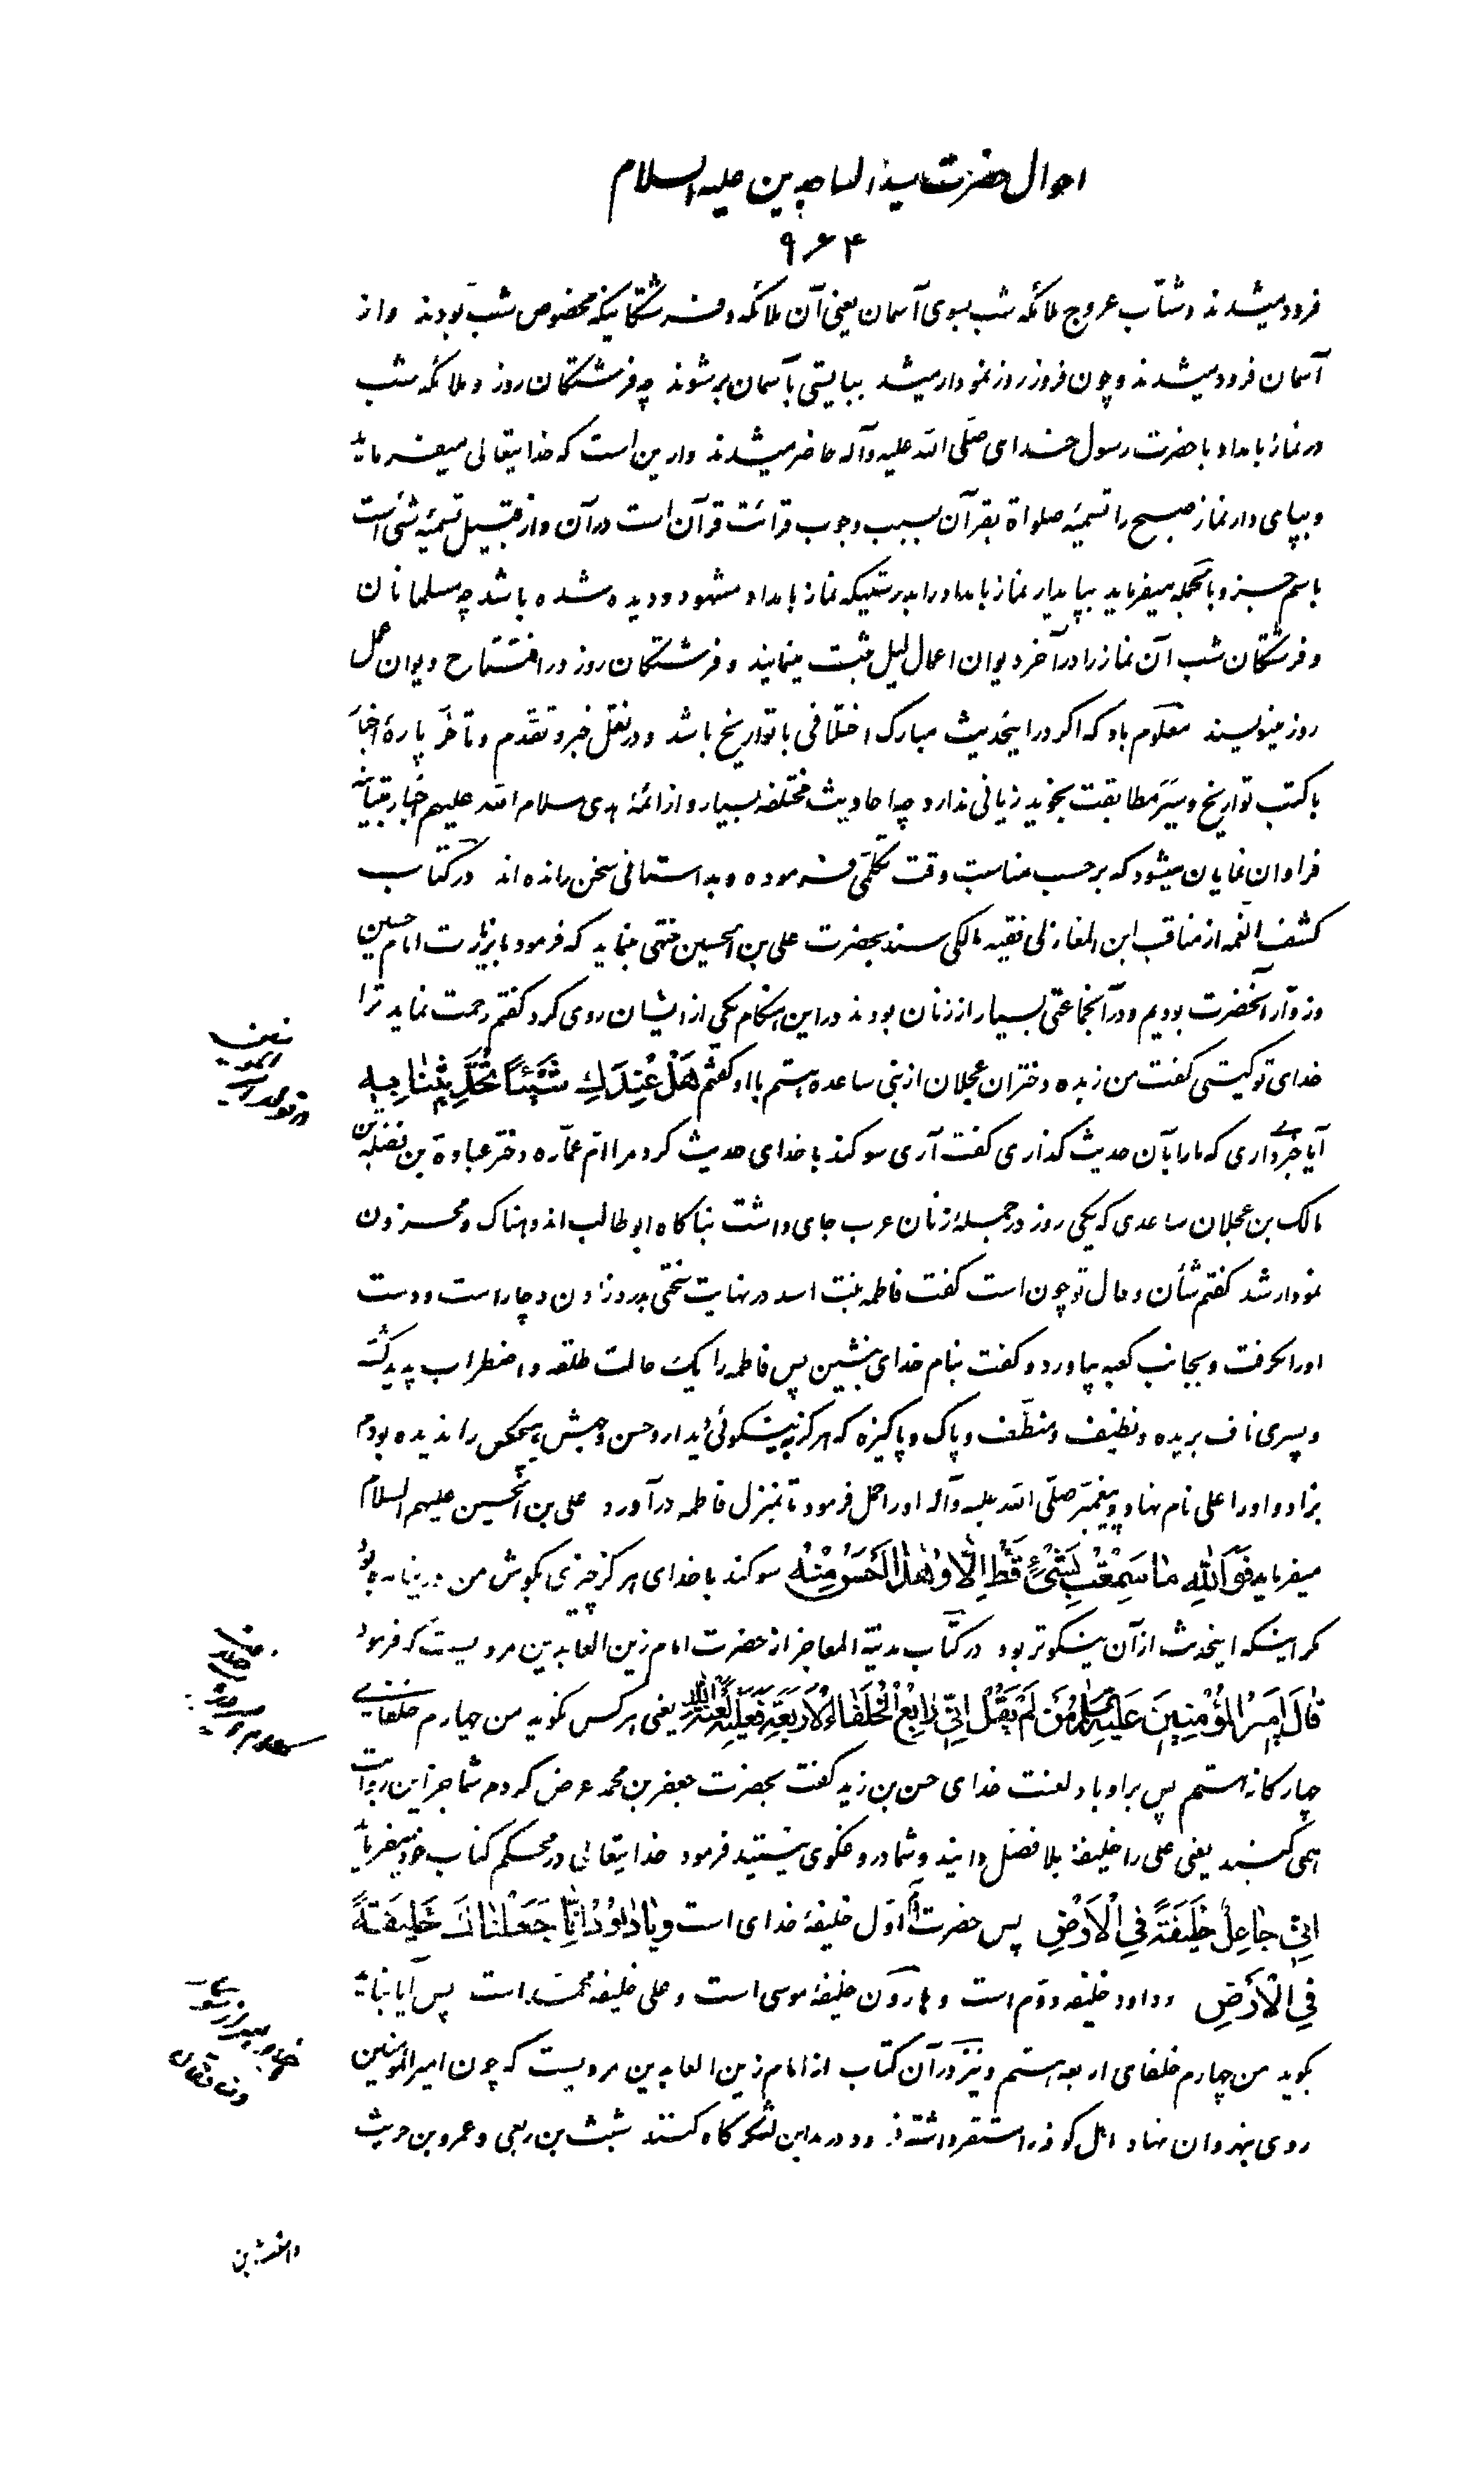 احوال حضرت سید الساجدین علیه السلام
۹۶۴
فرود میشدند و شتاب عروج ملائکه شب بسوی آسمان یعنی آن ملائکه و فرشتگانیکه مخصوص شب بودند و از
آسمان فرود میشدند و چون فروز روز نمودار میشد ببایستی بآسمان بر شوند چه فرشتگان روز و ملائکه شب
در نماز بامداد با حضرت رسول خدای صلّی الله علیه و آله حاضر میشدند و از این است که خدایتعالی میفرماید
و بپای دار نماز صبح را تسمیّه صلواة بقرآن بسبب وجوب قرائت قرآن است در آن و از قبیل تسمیّه شی است
باسم جزو بالجمله میفرماید بپایدار نماز بامداد را بدرستیکه نماز بامداد مشهود و دیده شده باشد چه مسلمانان
و فرشتگان شب آن نماز را در آخر دیوان اعمال لیل ثبت مینمایند و فرشتگان روز در افتتاح دیوان عمل
روز مینویسند معلوم باد که اگر در اینحدیث مبارک اختلافی با تواریخ باشد و در نقل خبر و تقدم و تاخر پارهٔ اخبار
با کتب تواریخ و سیر مطابقت نجوید زیانی ندارد چه احادیث مختلفه بسیار و از ائمهٔ هدی سلام الله علیهم اخبار
فراوان نمایان میشود که بر حسب مناسب وقت تکلمی فرموده و بداستانی سخن رانده‌اند در کتاب
کشف الغمه از مناقب ابن المغازلی فقیه مالکی سند بحضرت علی بن الحسین منتهی مینماید که فرمود ما بزیارت امام حسین
و زوّار آنحضرت بودیم و در آنجا جماعتی بسیار از زنان بودند در این هنگام یکی از ایشان روی کرد گفتم رحمت نماید ترا
خدای تو کیستی گفت من زبده دختران عجلان از بنی ساعده هستم با او گفتم هَلْ عِنْدَكِ شَيْئاً تُحَدِّثِينَا بِهِ
آیا خبری داری که ما را بآن حدیث گذاری گفت آری سوگند با خدای حدیث کرد مرا امّ عمّاره دختر عبادة بن نضلة بن
مالک بن عجلان ساعدی که یکی روز در جملهٔ زنان عرب جای داشت بناگاه ابوطالب اندوهناک و محزون
نمودار شد گفتم شأن و حال تو چون است گفت فاطمه بنت اسد در نهایت سختی بدرد زادن دچار است و دست
او را بگرفت و بجانب کعبه بیاورد و گفت بنام خدای بنشین پس فاطمه را یک حالت طلقه و اضطراب پدید گشت
و پسری ناف بریده و نظیف و منظّف و پاک و پاکیزه که هرگز به نیکوئی دیدار و حسن وجهش هیچکس را ندیده بودم
بزاد و او را علی نام نهاد و پیغمبر صلّی الله علیه و آله او را حمل فرمود تا بمنزل فاطمه درآورد علی بن الحسین علیهم السلام
میفرماید فَوَاللهِ مَا سَمِعْتُ بِشَيْءٍ قَطُّ اِلّا وَ هٰذَا اَحْسَنُ مِنْهُ سوگند با خدای هرگز چیزی بگوش من در نیامده بود
مگر اینکه اینحدیث از آن نیکوتر بود در کتاب مدینة المعاجز از حضرت امام زین العابدین مرویست که فرمود
قَالَ اَمِيرُ الْمُؤْمِنِينَ عَلَيْهِ السَّلَامُ مَنْ لَمْ يَقُلْ اِنِّي رَابِعُ الْخُلَفَاءِ الْاَرْبَعَةِ فَعَلَيْهِ لَعْنَةُ اللهِ یعنی هر کس نگوید من چهارم خلفای
چهارگانه هستم پس بر او باد لعنت خدای حسن بن زید گفت بحضرت جعفر بن محمد عرض کردم شما جز این روایت
همی کنید یعنی علی را خلیفهٔ بلا فضل دانید و شما دروغگوی نیستید فرمود خدایتعالی در محکم کتاب خود میفرماید
اِنّي جَاعِلٌ خَليفَةً فِي الْاَرْضِ پس حضرت آدم اوّل خلیفهٔ خدای است و يَا دَاوُدُ اِنَّا جَعَلْنَاكَ خَلِيفَةً
فِي الْاَرْضِ و داود خلیفه دوّم است و هارون خلیفهٔ موسی است و علی خلیفه محمد است پس آیا نباید
بگوید من چهارم خلفای اربعه هستم و نیز در آن کتاب از امام زین العابدین مرویست که چون امیرالمؤمنین
روی بنهروان نهاد اهل کوفه را مستقر داشتند و در مداین لشکرگاه کنند شبث بن ربعی و عمرو بن حریث